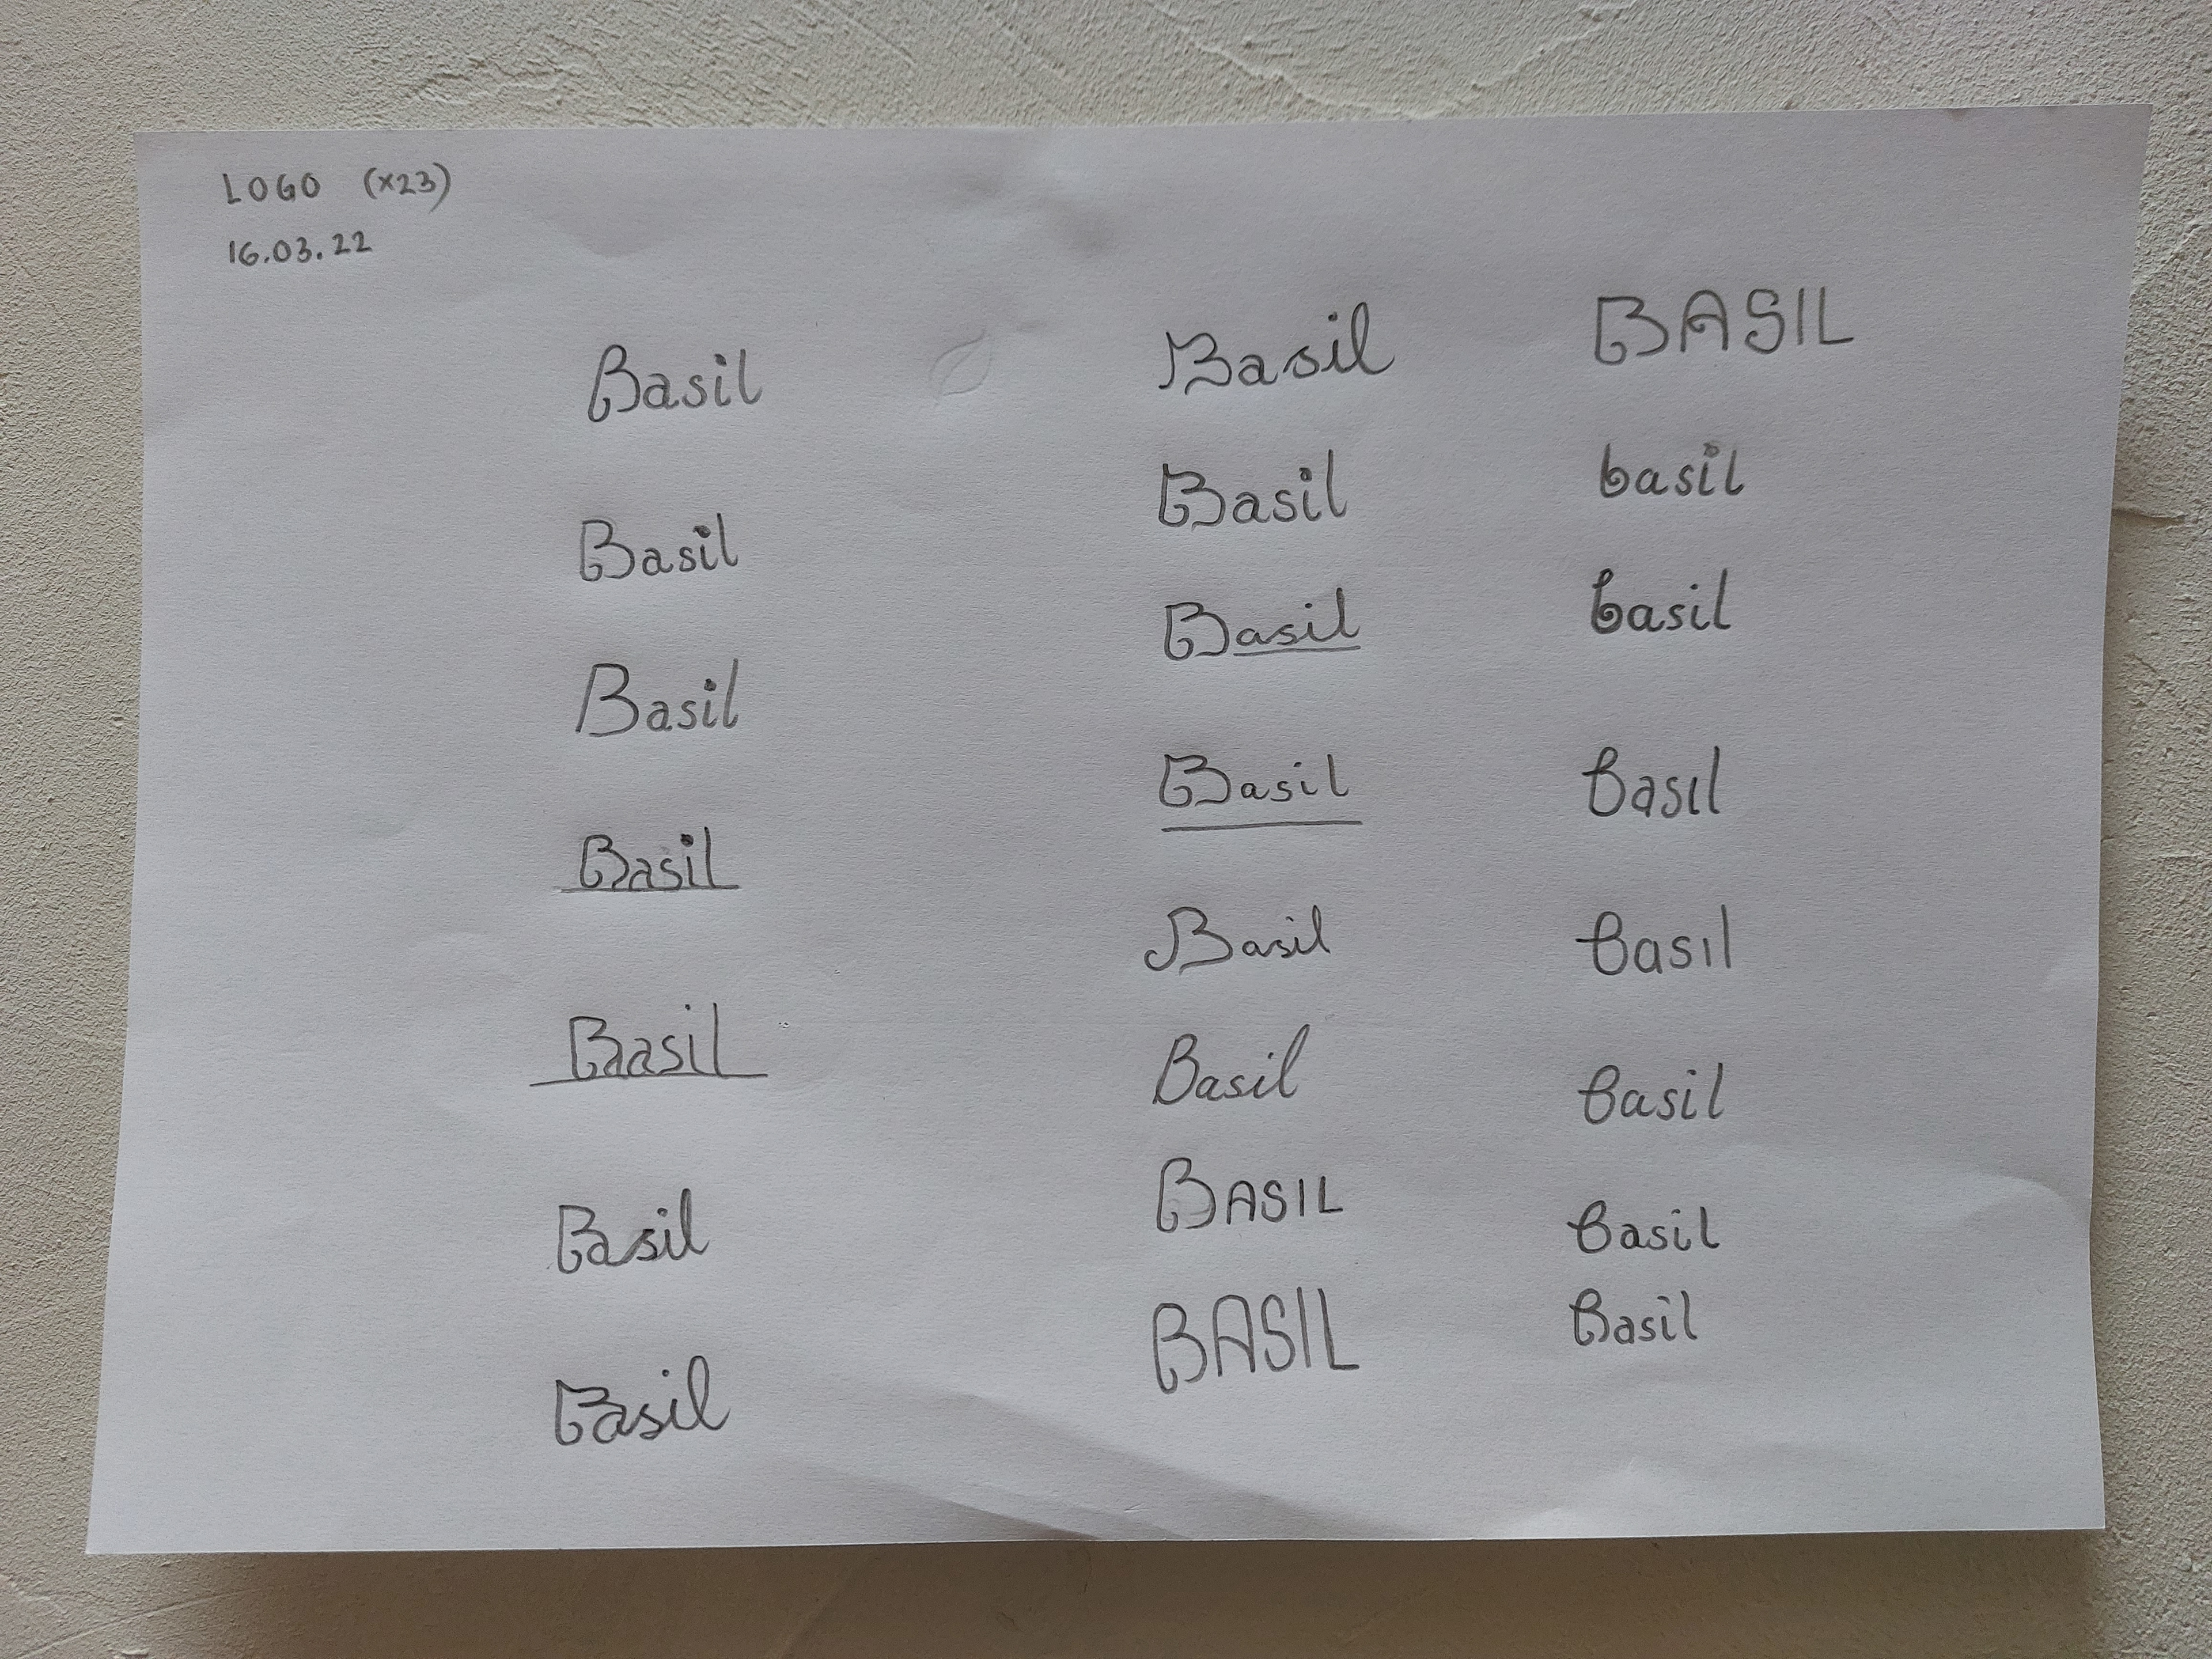 LOGO (x23)
16.03.22
Basil
Basil
Basil
Basil
Basil
Basil
Basil
Basil
Basil
Basil
Basil
Basil
Basil
BASIL
BASIL
BASIL
basil
basil
Basıl
Basıl
Basil
Basil
Basil